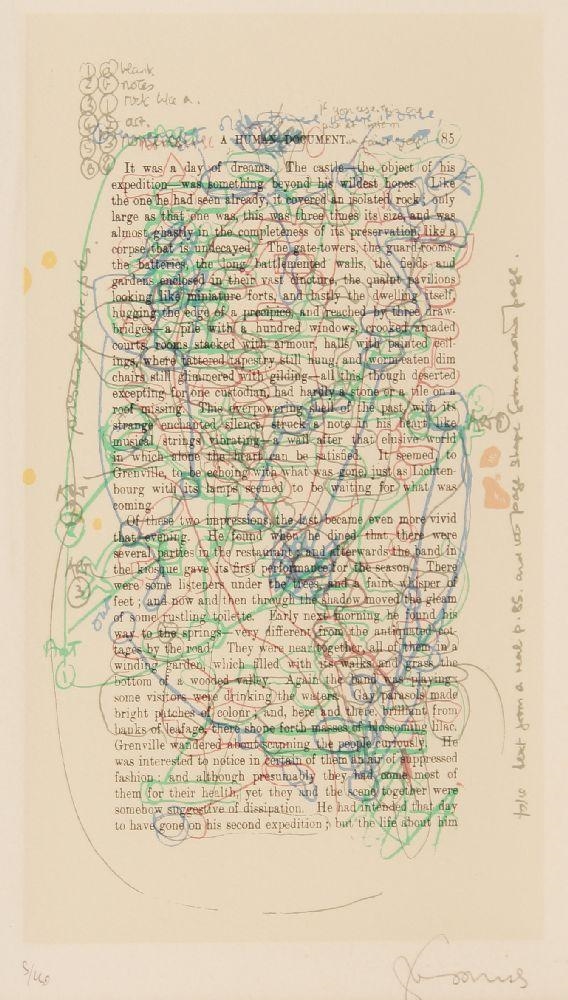 ① ⓐ blank
② ⓑ notes
③ ① rock like a.
④ ⑤ art.
⑤
⑥
A HUMAN DOCUMENT.
(85
It was a day of dreams. The castle—the object of his
expedition—was something beyond his wildest hopes. Like
the one he had seen already, it covered an isolated rock; only
large as that one was, this was three times its size, and was
almost ghastly in the completeness of its preservation, like a
corpse that is undecayed. The gate-towers, the guard-rooms,
the batteries, the long battlemented walls, the fields and
gardens enclosed in their vast cincture, the quaint pavilions
looking like miniature forts, and lastly the dwelling itself,
hugging the edge of a precipice, and reached by three draw-
bridges—a pile with a hundred windows, crooked arcaded
courts, rooms stacked with armour, halls with painted ceil-
ings, where tattered tapestry still hung, and worm-eaten dim
chairs still glimmered with gilding—all this, though deserted
excepting for one custodian, had hardly a stone or a tile on a
roof missing. This overpowering shell of the past, with its
strange enchanted silence, struck a note in his heart like
musical strings vibrating—a wail after that elusive world
in which alone the heart can be satisfied. It seemed, to
Grenville, to be echoing with what was gone, just as Lichten-
bourg with its lamps seemed to be waiting for what was
coming.
Of these two impressions, the last became even more vivid
that evening. He found when he dined that there were
several parties in the restaurant; and afterwards the band in
the kiosque gave its first performance for the season. There
were some listeners under the trees, and a faint whisper of
feet; and now and then through the shadow moved the gleam
of some rustling toilette. Early next morning he found his
way to the springs—very different from the antiquated cot-
tages by the road. They were near together, all of them in a
winding garden, which filled with its walks and grass the
bottom of a wooded valley. Again the band was playing:
some visitors were drinking the waters. Gay parasols made
bright patches of colour; and, here and there, brilliant from
banks of leafage, there shone forth masses of blossoming lilac.
Grenville wandered about scanning the people curiously. He
was interested to notice in certain of them an air of suppressed
fashion; and although presumably they had come most of
them for their health, yet they and the scene together were
somehow suggestive of dissipation. He had intended that day
to have gone on his second expedition; but the life about him
text from a real p. 85. and no page shape from another page.
5/40